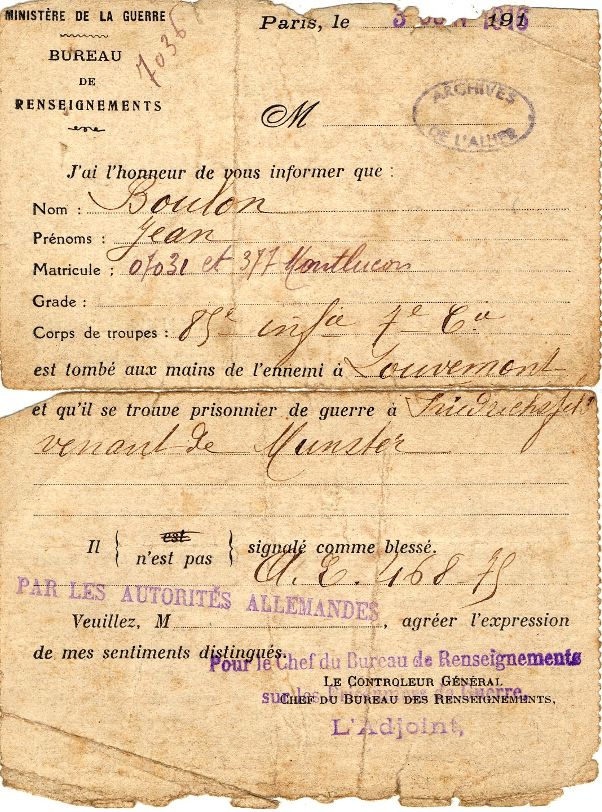 MINISTÈRE DE LA GUERRE
BUREAU
DE
RENSEIGNEMENTS
7036
Paris, le 3 1916 191
M
ARCHIVES
DE L'ALLIER
J'ai l'honneur de vous informer que :
Nom : Boulon
Prénoms : Jean
Matricule : 07031 et 377 Montluçon
Grade :
Corps de troupes : 85e infie 7e Cie
est tombé aux mains de l'ennemi à Louvemont
et qu'il se trouve prisonnier de guerre à Friedrichsfeld
venant de Munster
Il { est n'est pas } signalé comme blessé.
A.E. 468
PAR LES AUTORITÉS ALLEMANDES
Veuillez, M , agréer l'expression
de mes sentiments distingués.
Pour le Chef du Bureau de Renseignements
LE CONTROLEUR GÉNÉRAL
sur les Prisonniers de Guerre,
CHEF DU BUREAU DES RENSEIGNEMENTS,
L'Adjoint,